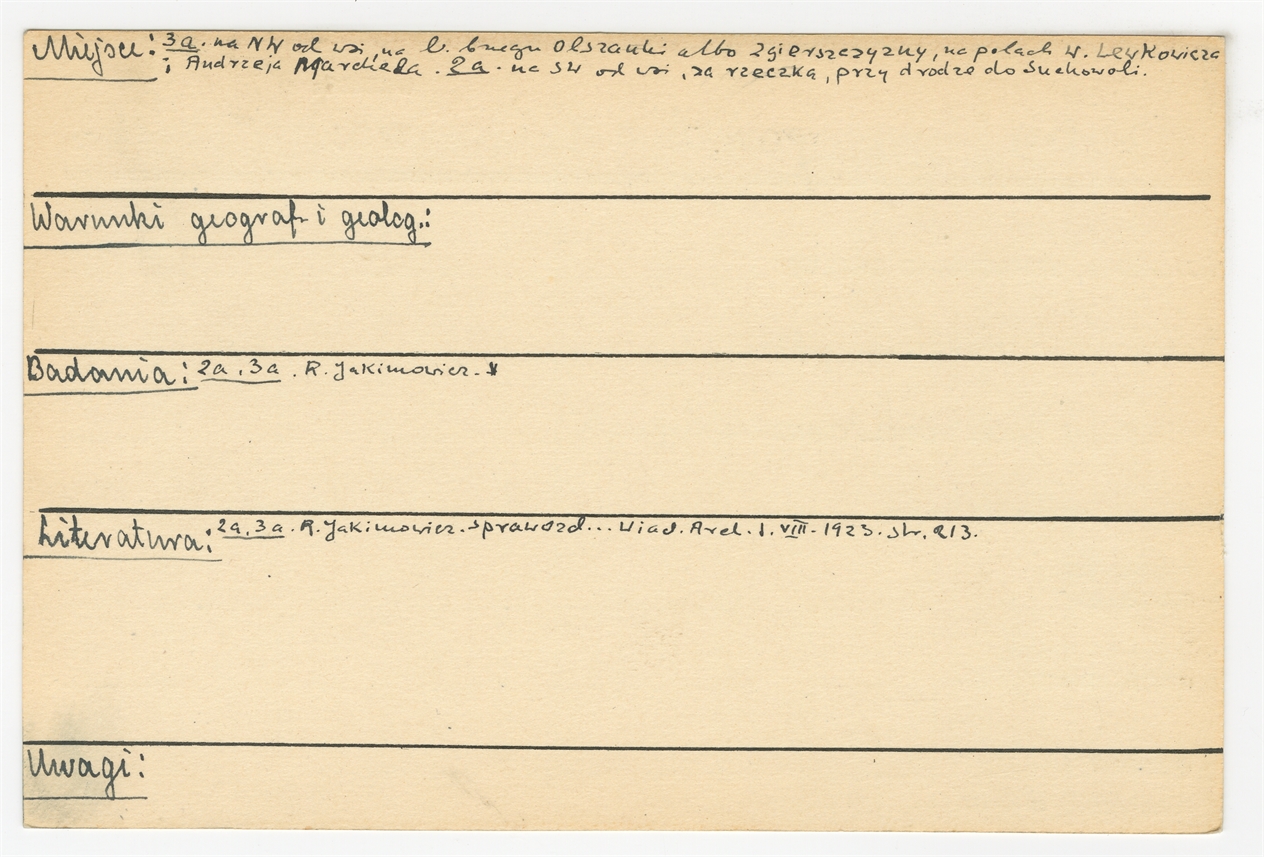 Miejsce: 3a. na NW od wsi, na l. brzegu Olszanki albo Zgierszczyzny, na polach W. Leykowicza
i Andrzeja . 2a. na SW od wsi, za rzeczką, przy drodze do Suchowoli.
Warunki geograf. i geolog.:
Badania: 2a, 3a. R. Jakimowicz.
Literatura: 2a, 3a. R. Jakimowicz. Sprawozd... Wiad. Arch. t. VIII. 1923. str. 213.
Uwagi: